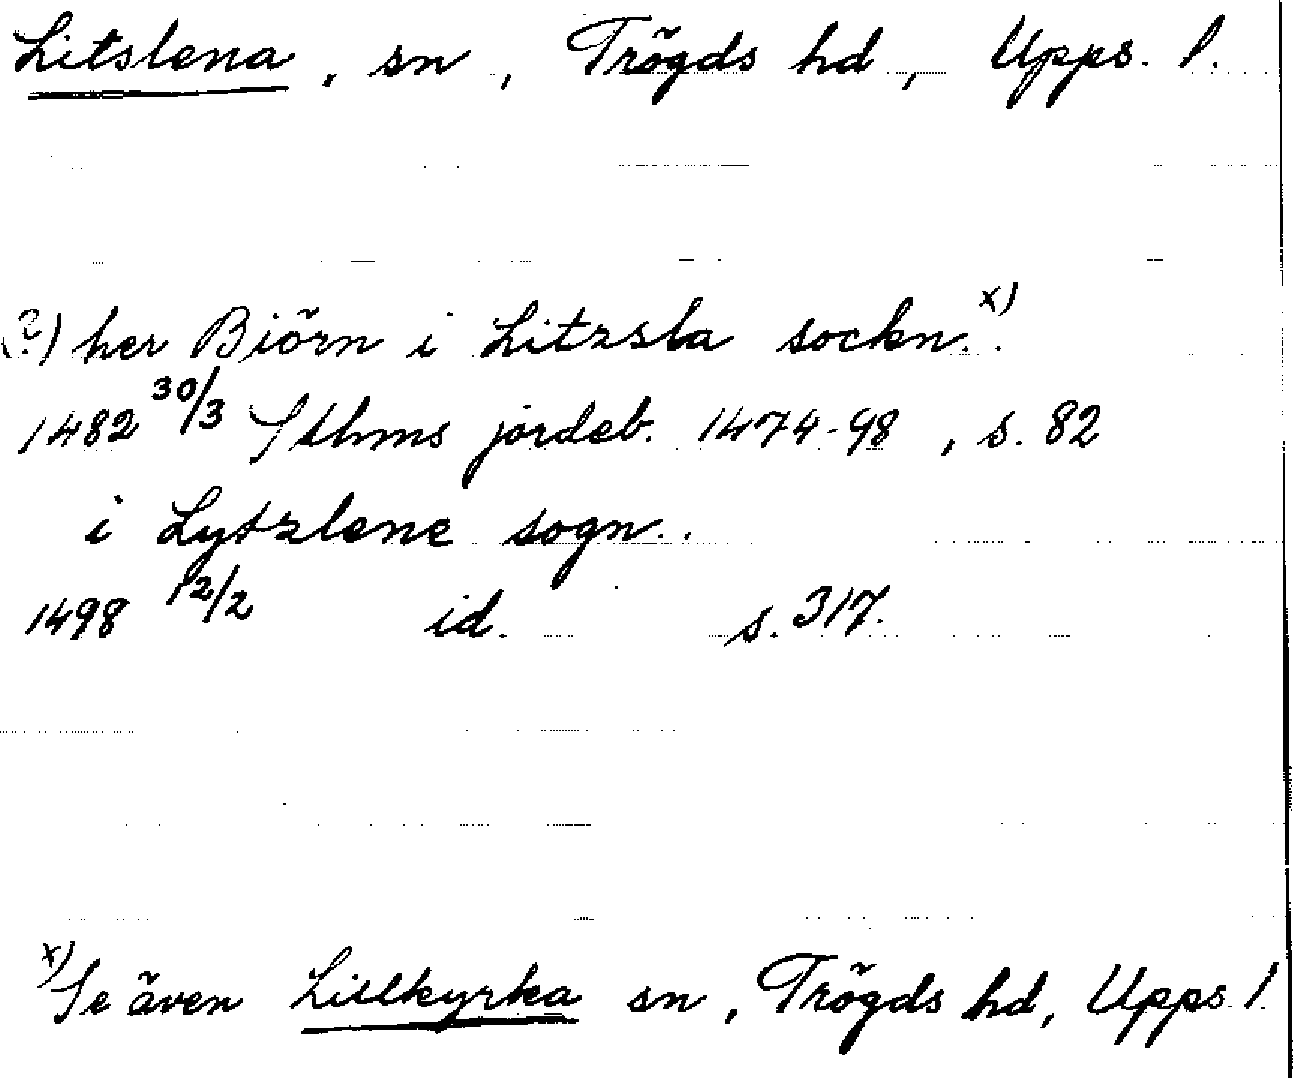 Litslena, sn, Trögds hd, Upps. l.
(?) her Biörn i Litzsla sockn. x)
1482 30/3 Sthms jordeb. 1474-98, s. 82
i Lytzlene sogn.
1498 12/2 id. s. 317.
x) Se även Lillkyrka sn, Trögds hd, Upps l.